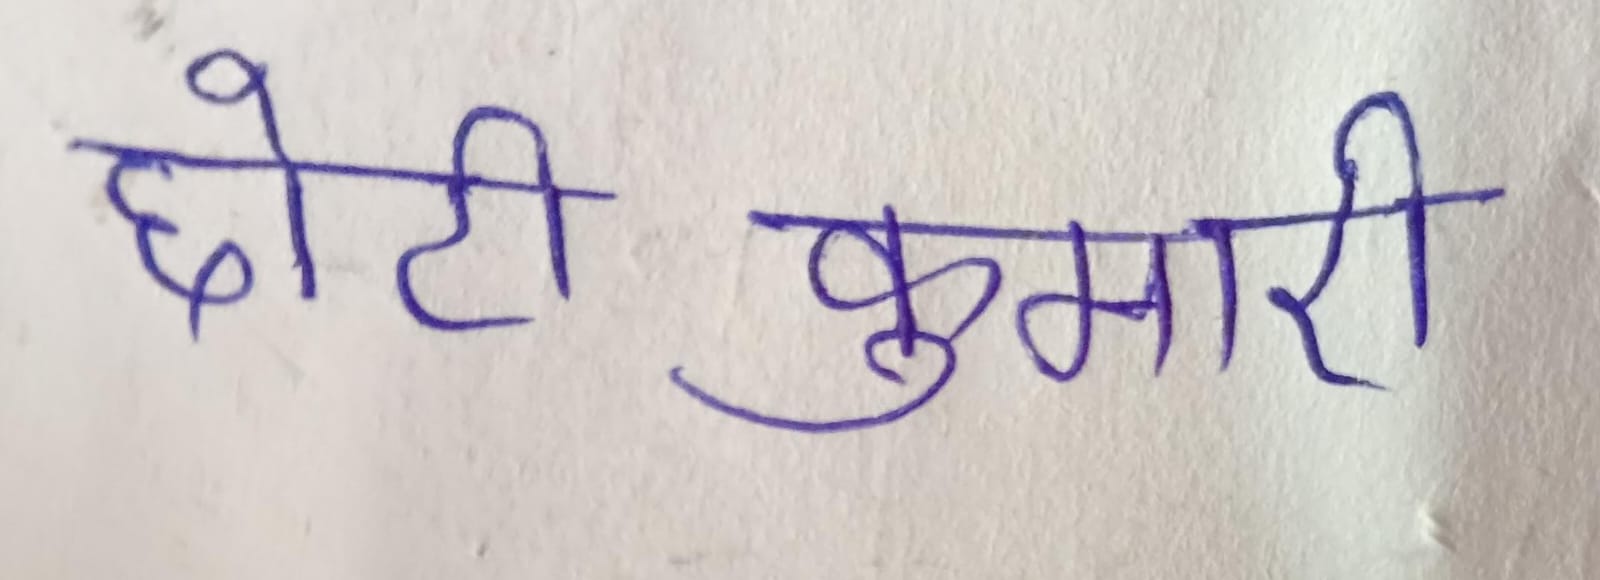 छोटी कुमारी